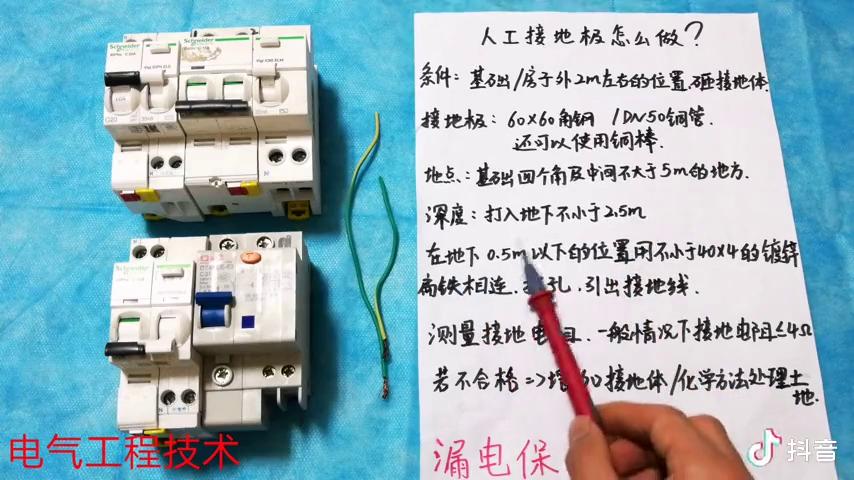 Schneider
Schneider
C20
Schneider
N
人工接地极怎么做?
条件: 基础/房子外2m左右的位置砸接地体
接地极: 60×60角钢 / DN50钢管.
还可以使用铜棒.
地点: 基础四个角及中间不大于5m的地方.
深度: 打入地下不小于2.5m
在地下0.5m以下的位置用不小于40×4的镀锌
扁铁相连、孔、引出接地线.
测量接地电阻、一般情况下接地电阻≤4Ω
若不合格=>增加接地体/化学方法处理土
地.
电气工程技术
漏电保
抖音